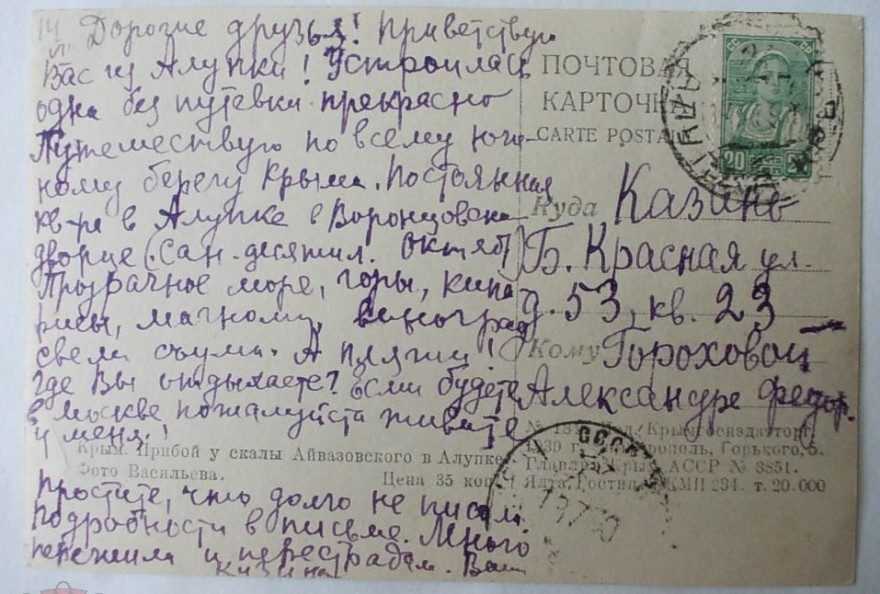 14
Дорогие друзья! Приветствую
Вас из Алупки! Устроилась
одна без путевки прекрасно
Путешествую по всему юж-
ному берегу Крыма. Постоянная
кв-ра в Алупке в Воронцовском
дворце (Сан. десятил. Октяб)
Прозрачное море, горы, кипа
рисы, магнолии, виноград
свели с ума. А пляжи!
Где Вы отдыхаете? Если будете
в Москве пожалуйста живите
у меня!
Простите, что долго не писала
Подробности в письме. Много
пережила и перестрадала. Ваша
ПОЧТОВАЯ
КАРТОЧКА
CARTE POSTALE
20
Куда Казань
Б. Красная ул.
д. 53, кв. 23
Кому Гороховой
Александре Федор.
Крым. Прибой у скалы Айвазовского в Алупке
Фото Васильева. Цена 35 коп.
Крымгосиздат
1939 г. Горького, 5.
Крым АССР № 3851.
Ялта, т. 20.000
СССР